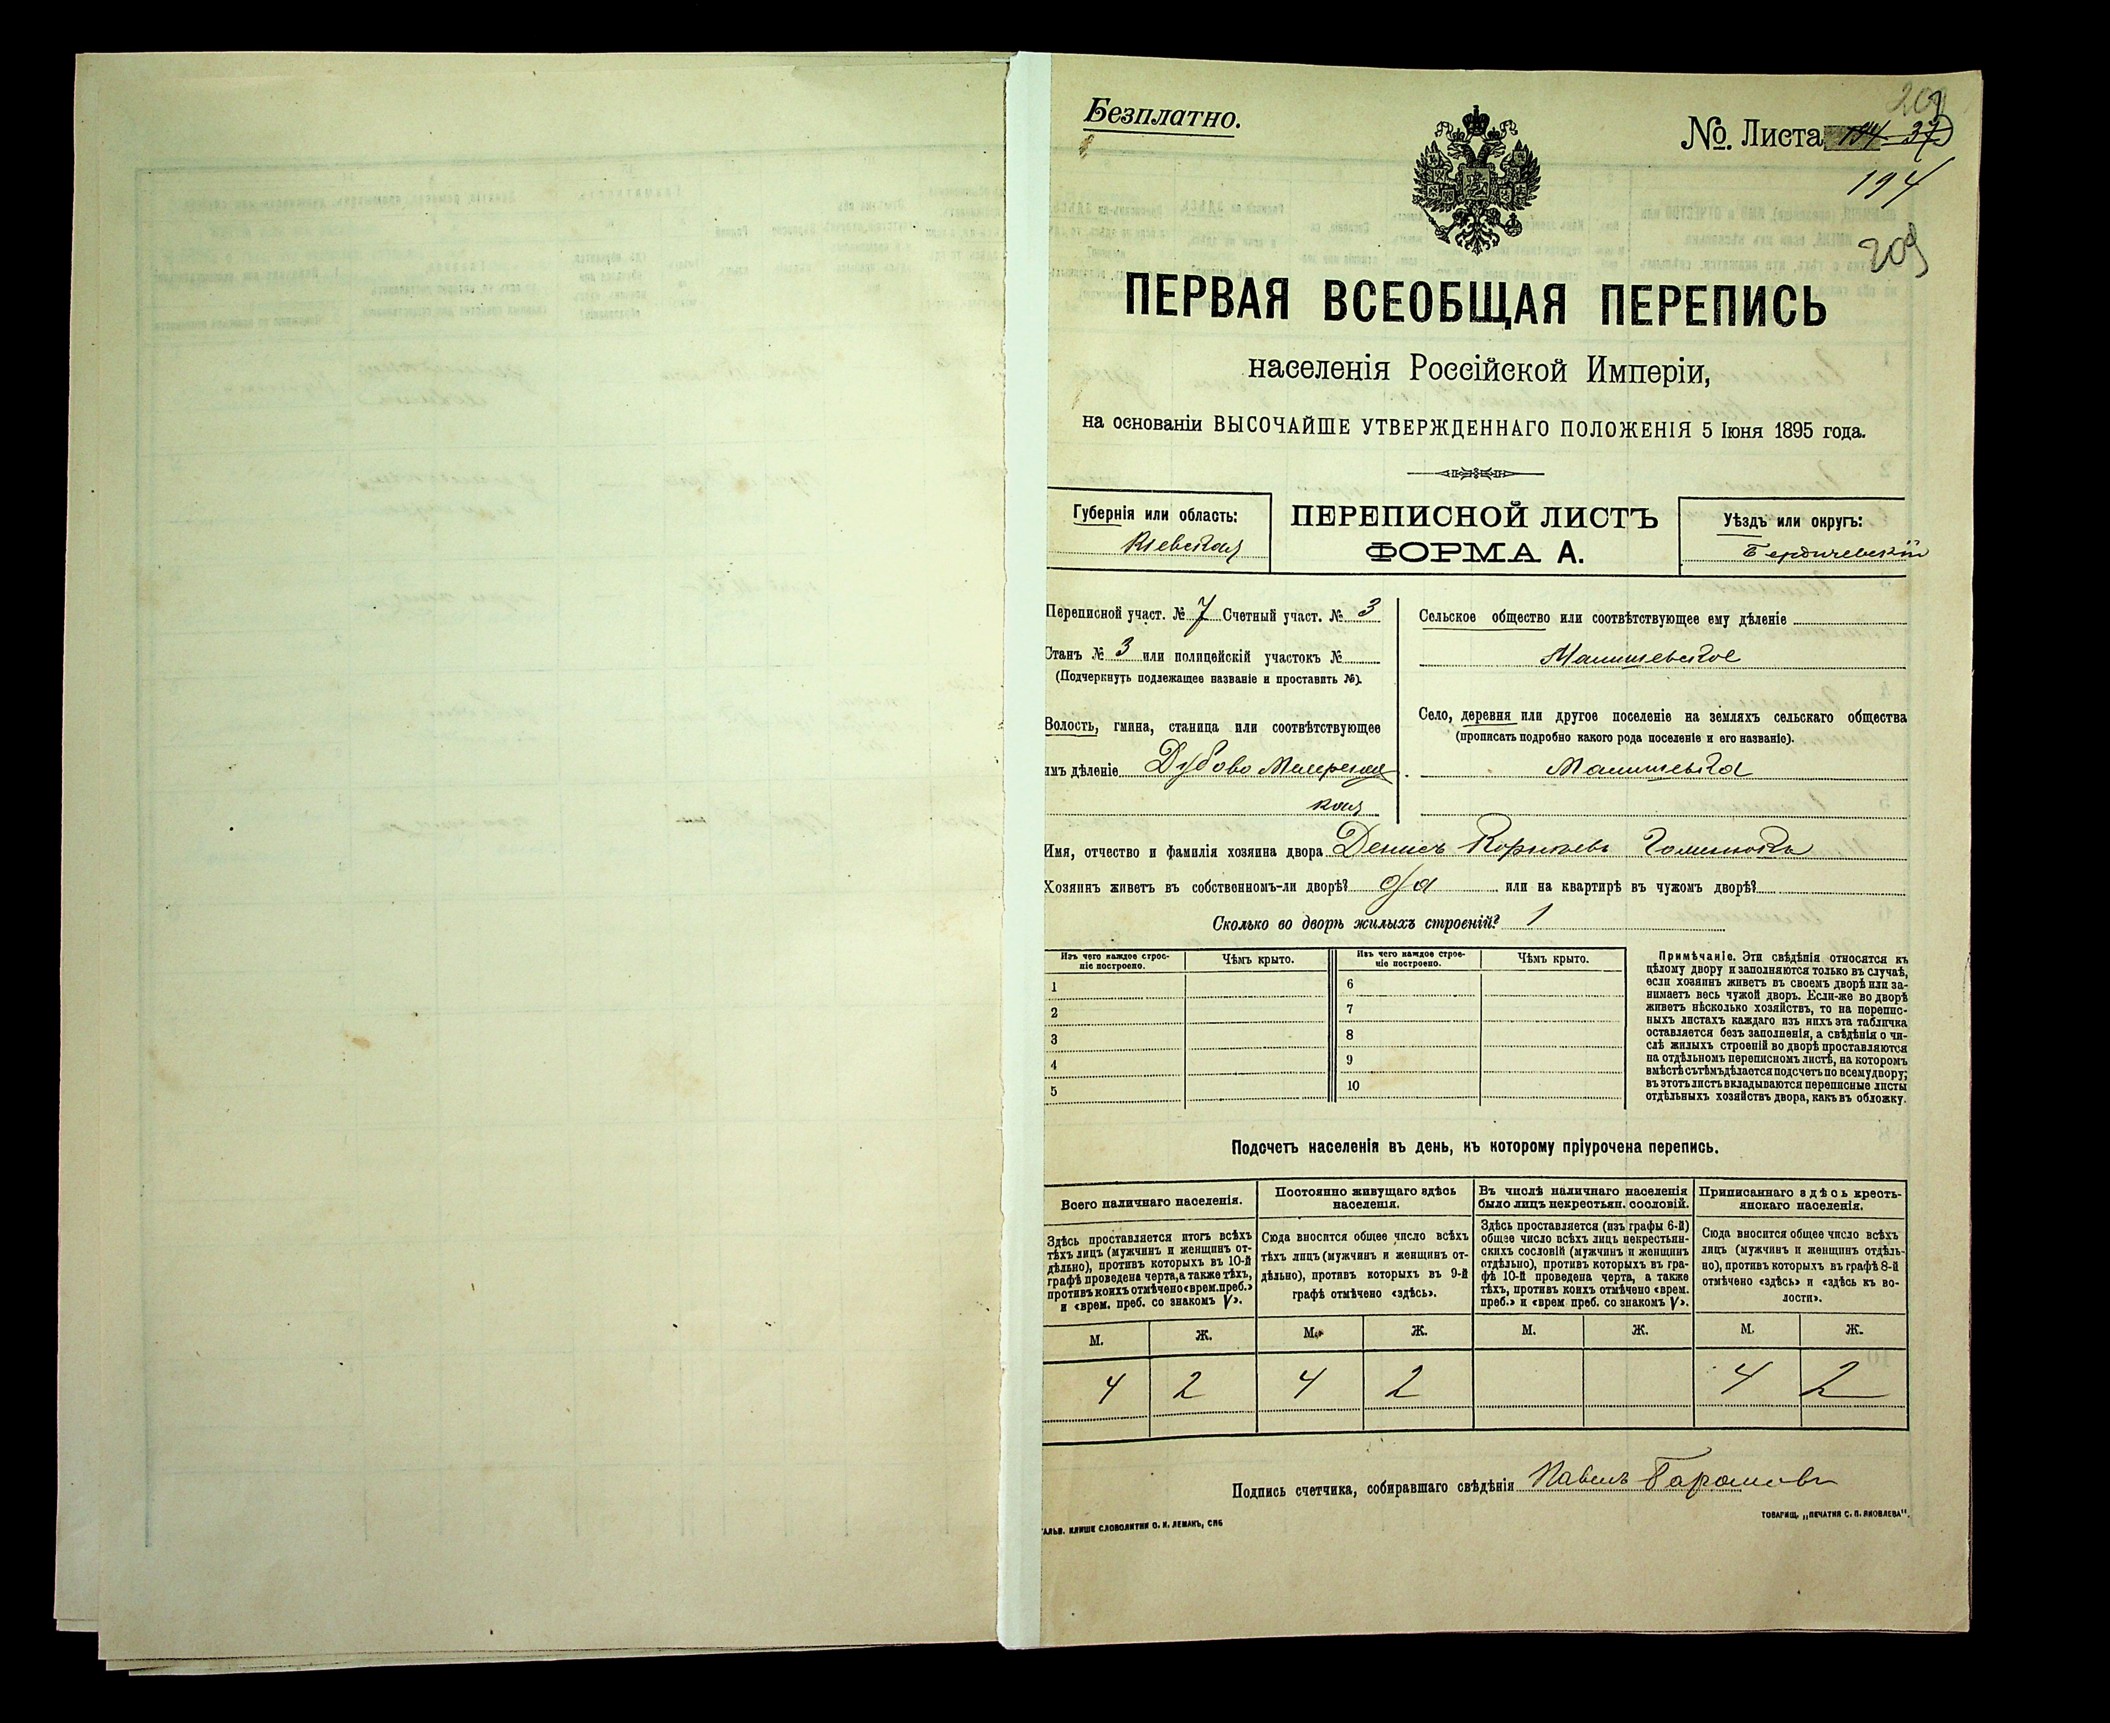 Безплатно.
№. Листа 194 37
203
194
209
ПЕРВАЯ ВСЕОБЩАЯ ПЕРЕПИСЬ
населенія Россійской Имперіи,
на основаніи ВЫСОЧАЙШЕ УТВЕРЖДЕННАГО ПОЛОЖЕНІЯ 5 Іюня 1895 года.
Губернія или область:
Кіевская
ПЕРЕПИСНОЙ ЛИСТЪ
ФОРМА А.
Уѣздъ или округъ:
Бердичевскій
Переписной участ. № 7 Счетный участ. № 3
Станъ № 3 или полицейскій участокъ №
(Подчеркнуть подлежащее названіе и проставить №).
Волость, гмина, станица или соотвѣтствующее
имъ дѣленіе Дубово
кая
Сельское общество или соотвѣтствующее ему дѣленіе
Малишевское
Село, деревня или другое поселеніе на земляхъ сельскаго общества
(прописать подробно какого рода поселеніе и его названіе).
Малишевка
Имя, отчество и фамилія хозяина двора Денисъ Корнѣевъ
Хозяинъ живетъ въ собственномъ-ли дворѣ? да или на квартирѣ въ чужомъ дворѣ?
Сколько во дворѣ жилыхъ строеній? 1
Изъ чего каждое строеніе построено. Чѣмъ крыто. Изъ чего каждое строеніе построено. Чѣмъ крыто.
1 6
2 7
3 8
4 9
5 10
Примѣчаніе. Эти свѣдѣнія относятся къ
цѣлому двору и заполняются только въ случаѣ,
если хозяинъ живетъ въ своемъ дворѣ или за-
нимаетъ весь чужой дворъ. Если-же во дворѣ
живетъ нѣсколько хозяйствъ, то на перепис-
ныхъ листахъ каждаго изъ нихъ эта табличка
оставляется безъ заполненія, а свѣдѣнія о чи-
слѣ жилыхъ строеній во дворѣ проставляются
на отдѣльномъ переписномъ листѣ, на которомъ
вмѣстѣ съ тѣмъ дѣлается подсчетъ по всему двору;
въ этотъ листъ вкладываются переписные листы
отдѣльныхъ хозяйствъ двора, какъ въ обложку.
Подсчетъ населенія въ день, къ которому пріурочена перепись.
Всего наличнаго населенія.
Здѣсь проставляется итогъ всѣхъ
тѣхъ лицъ (мужчинъ и женщинъ от-
дѣльно), противъ которыхъ въ 10-й
графѣ проведена черта, а также тѣхъ,
противъ коихъ отмѣчено «врем. преб.»
и «врем. преб. со знакомъ V».
Постоянно живущаго здѣсь
населенія.
Сюда вносится общее число всѣхъ
тѣхъ лицъ (мужчинъ и женщинъ от-
дѣльно), противъ которыхъ въ 9-й
графѣ отмѣчено «здѣсь».
Въ числѣ наличнаго населенія
было лицъ некрестьян. сословій.
Здѣсь проставляется (изъ графы 6-й)
общее число всѣхъ лицъ некрестьян-
скихъ сословій (мужчинъ и женщинъ
отдѣльно), противъ которыхъ въ гра-
фѣ 10-й проведена черта, а также
тѣхъ, противъ коихъ отмѣчено «врем.
преб.» и «врем преб. со знакомъ V».
Приписаннаго здѣсь кресть-
янскаго населенія.
Сюда вносится общее число всѣхъ
лицъ (мужчинъ и женщинъ отдѣль-
но), противъ которыхъ въ графѣ 8-й
отмѣчено «здѣсь» и «здѣсь въ во-
лости».
М. Ж. М. Ж. М. Ж. М. Ж.
4 2 4 2 4 2
Подпись счетчика, собиравшаго свѣдѣнія Павелъ
ГАЛЬВ. КЛИШЕ СЛОВОЛИТНИ О. И. ЛЕМАНЪ, СПБ
ТОВАРИЩ. „ПЕЧАТНЯ С. П. ЯКОВЛЕВА".